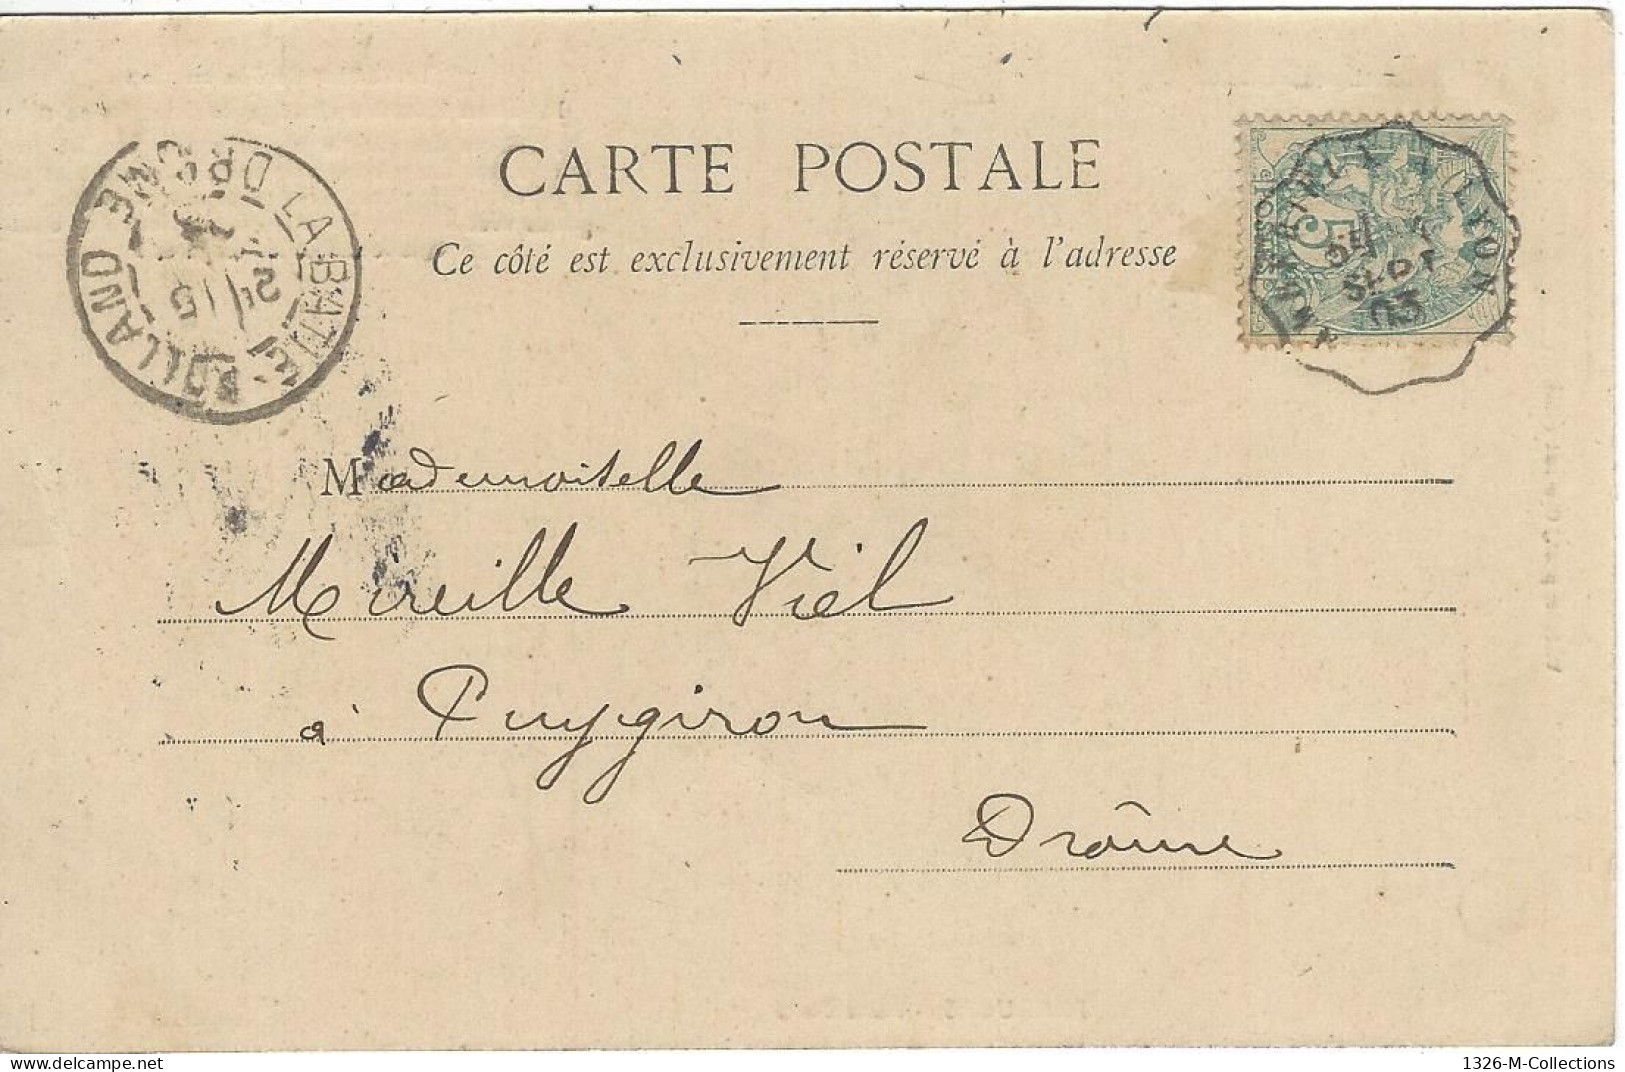 CARTE POSTALE
Ce côté est exclusivement réservé à l'adresse
LA BATIE-ROLLAND
DROME
15
5
LYON
SEPT
03
Mademoiselle
Mireille Viel
à Puygiron
Drôme
1326-M-Collections